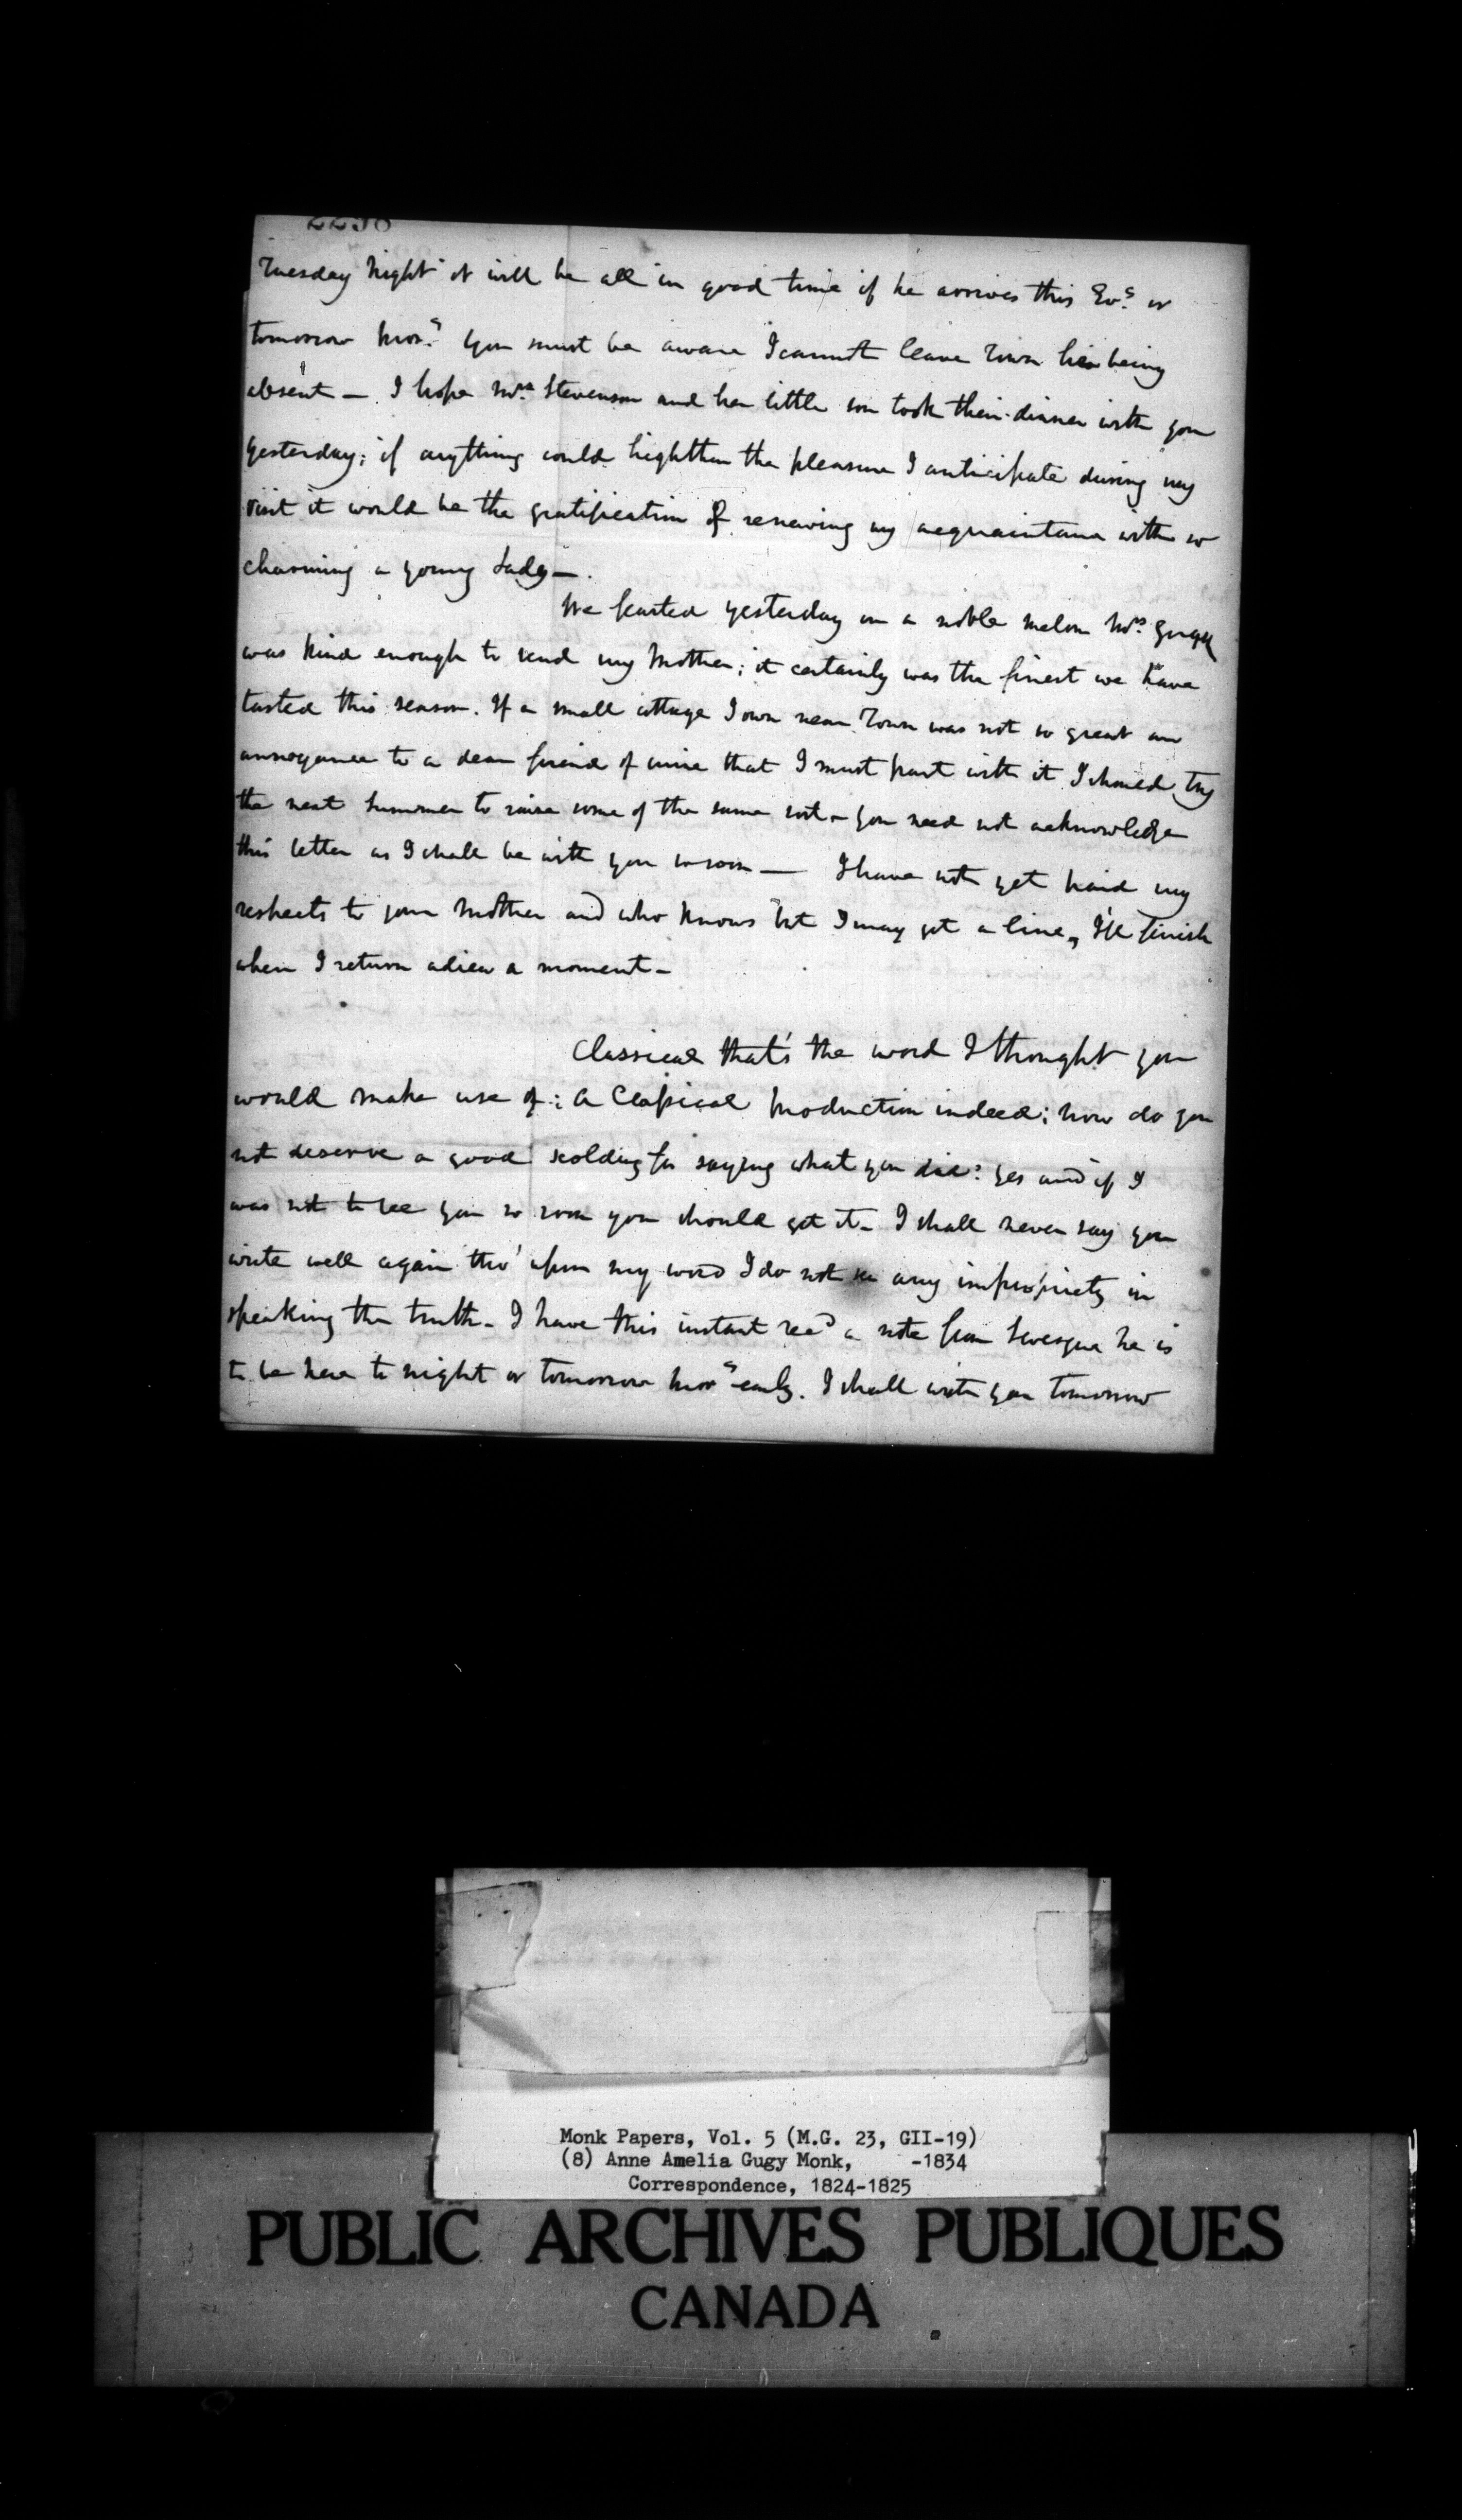 Tuesday night it will be all in good time if he arrives this Evg. or
tomorrow morg. you must be aware I cannot leave Town his being
absent — I hope Mrs. Stevenson and her little son took their dinner with you
yesterday; if anything could highthen the pleasure I anticipate during my
visit it would be the gratification of renewing my acquaintance with so
charming a young Lady —.
We feasted yesterday on a noble melon Mrs. Gugy
was kind enough to send my Mother; it certainly was the finest we have
tasted this season. If a small cottage I own near Town was not so great an
annoyance to a dear friend of mine that I must part with it I should try
the next Summer to raise some of the same sort - you need not acknowledge
this letter as I shall be with you so soon — I have not yet paid my
respects to your Mother and who knows but I may get a line, I'll finish
when I return adieu a moment -
Classical that's the word I thought you
would make use of; a Classical production indeed; now do you
not deserve a good scolding for saying what you did: yes and if I
was not to see you so soon you should get it - I shall never say you
write well again tho' upon my word I do not see any impropriety in
speaking the truth - I have this instant recd a note from Levesque he is
to be here to night or tomorrow morg early. I shall with you tomorrow
Monk Papers, Vol. 5 (M.G. 23, GII-19)
(8) Anne Amelia Gugy Monk, -1834
Correspondence, 1824-1825
PUBLIC ARCHIVES PUBLIQUES
CANADA